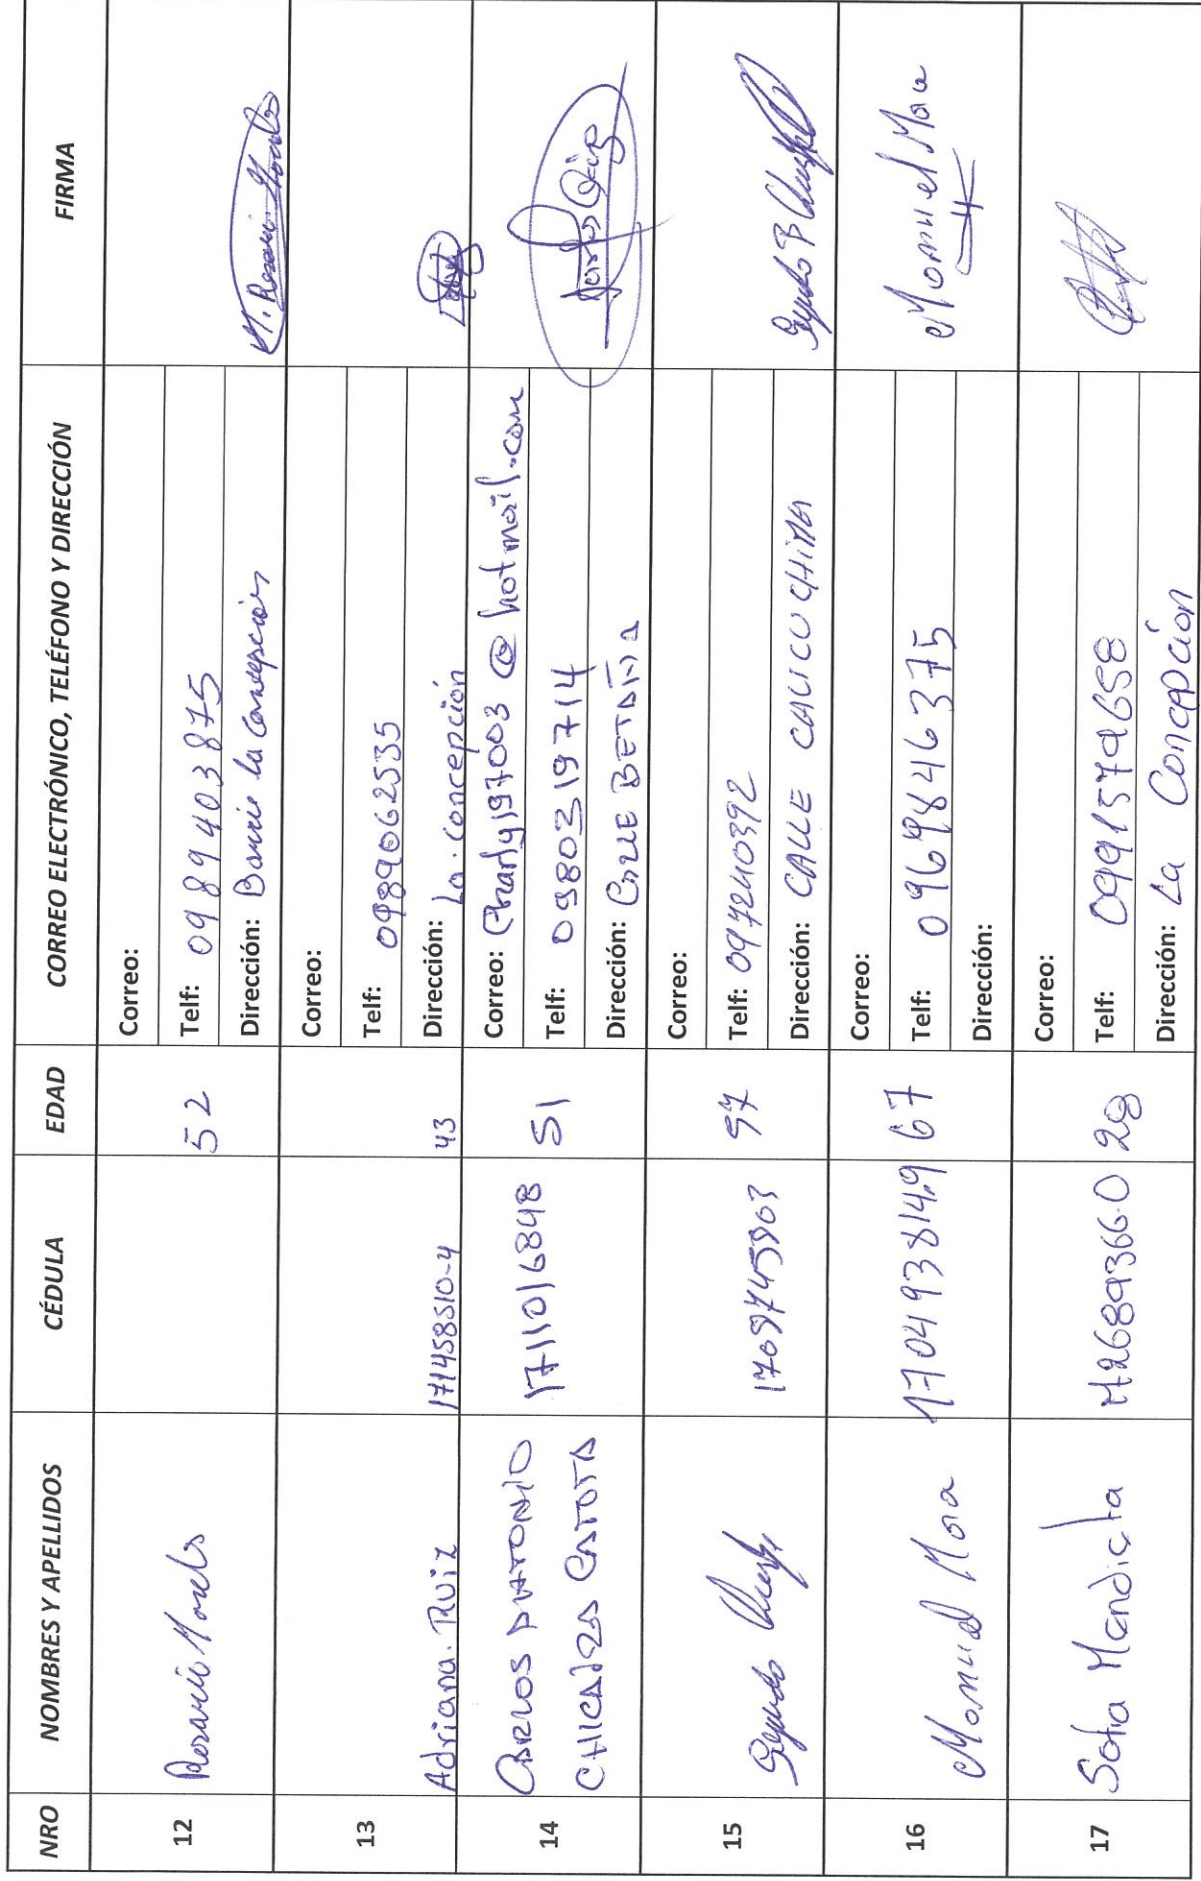 NRO NOMBRES Y APELLIDOS CÉDULA EDAD CORREO ELECTRÓNICO, TELÉFONO Y DIRECCIÓN FIRMA
12 Rosario Morales 52
Correo:
Telf: 0989403875
Dirección: Barrio la Concepción
M. Rosario Morales
13 Adriana. Ruiz 171458510-4 43
Correo:
Telf: 0989062535
Dirección: La. concepción
14 CARLOS ANTONIO
CHICAIZA CATOTA
1711016848 51
Correo: Charly197003@hotmail.com
Telf: 0980319714
Dirección: CALLE BETANIA
15 Segundo 1709745903 57
Correo:
Telf: 097240392
Dirección: CALLE CALICUCHIMA
Segundo
16 Manuel Mora 170493814.9 67
Correo:
Telf: 0969846375
Dirección:
Manuel Mora
17 Sofia Mendieta 172689366-0 28
Correo:
Telf: 0991579658
Dirección: La Concepcion